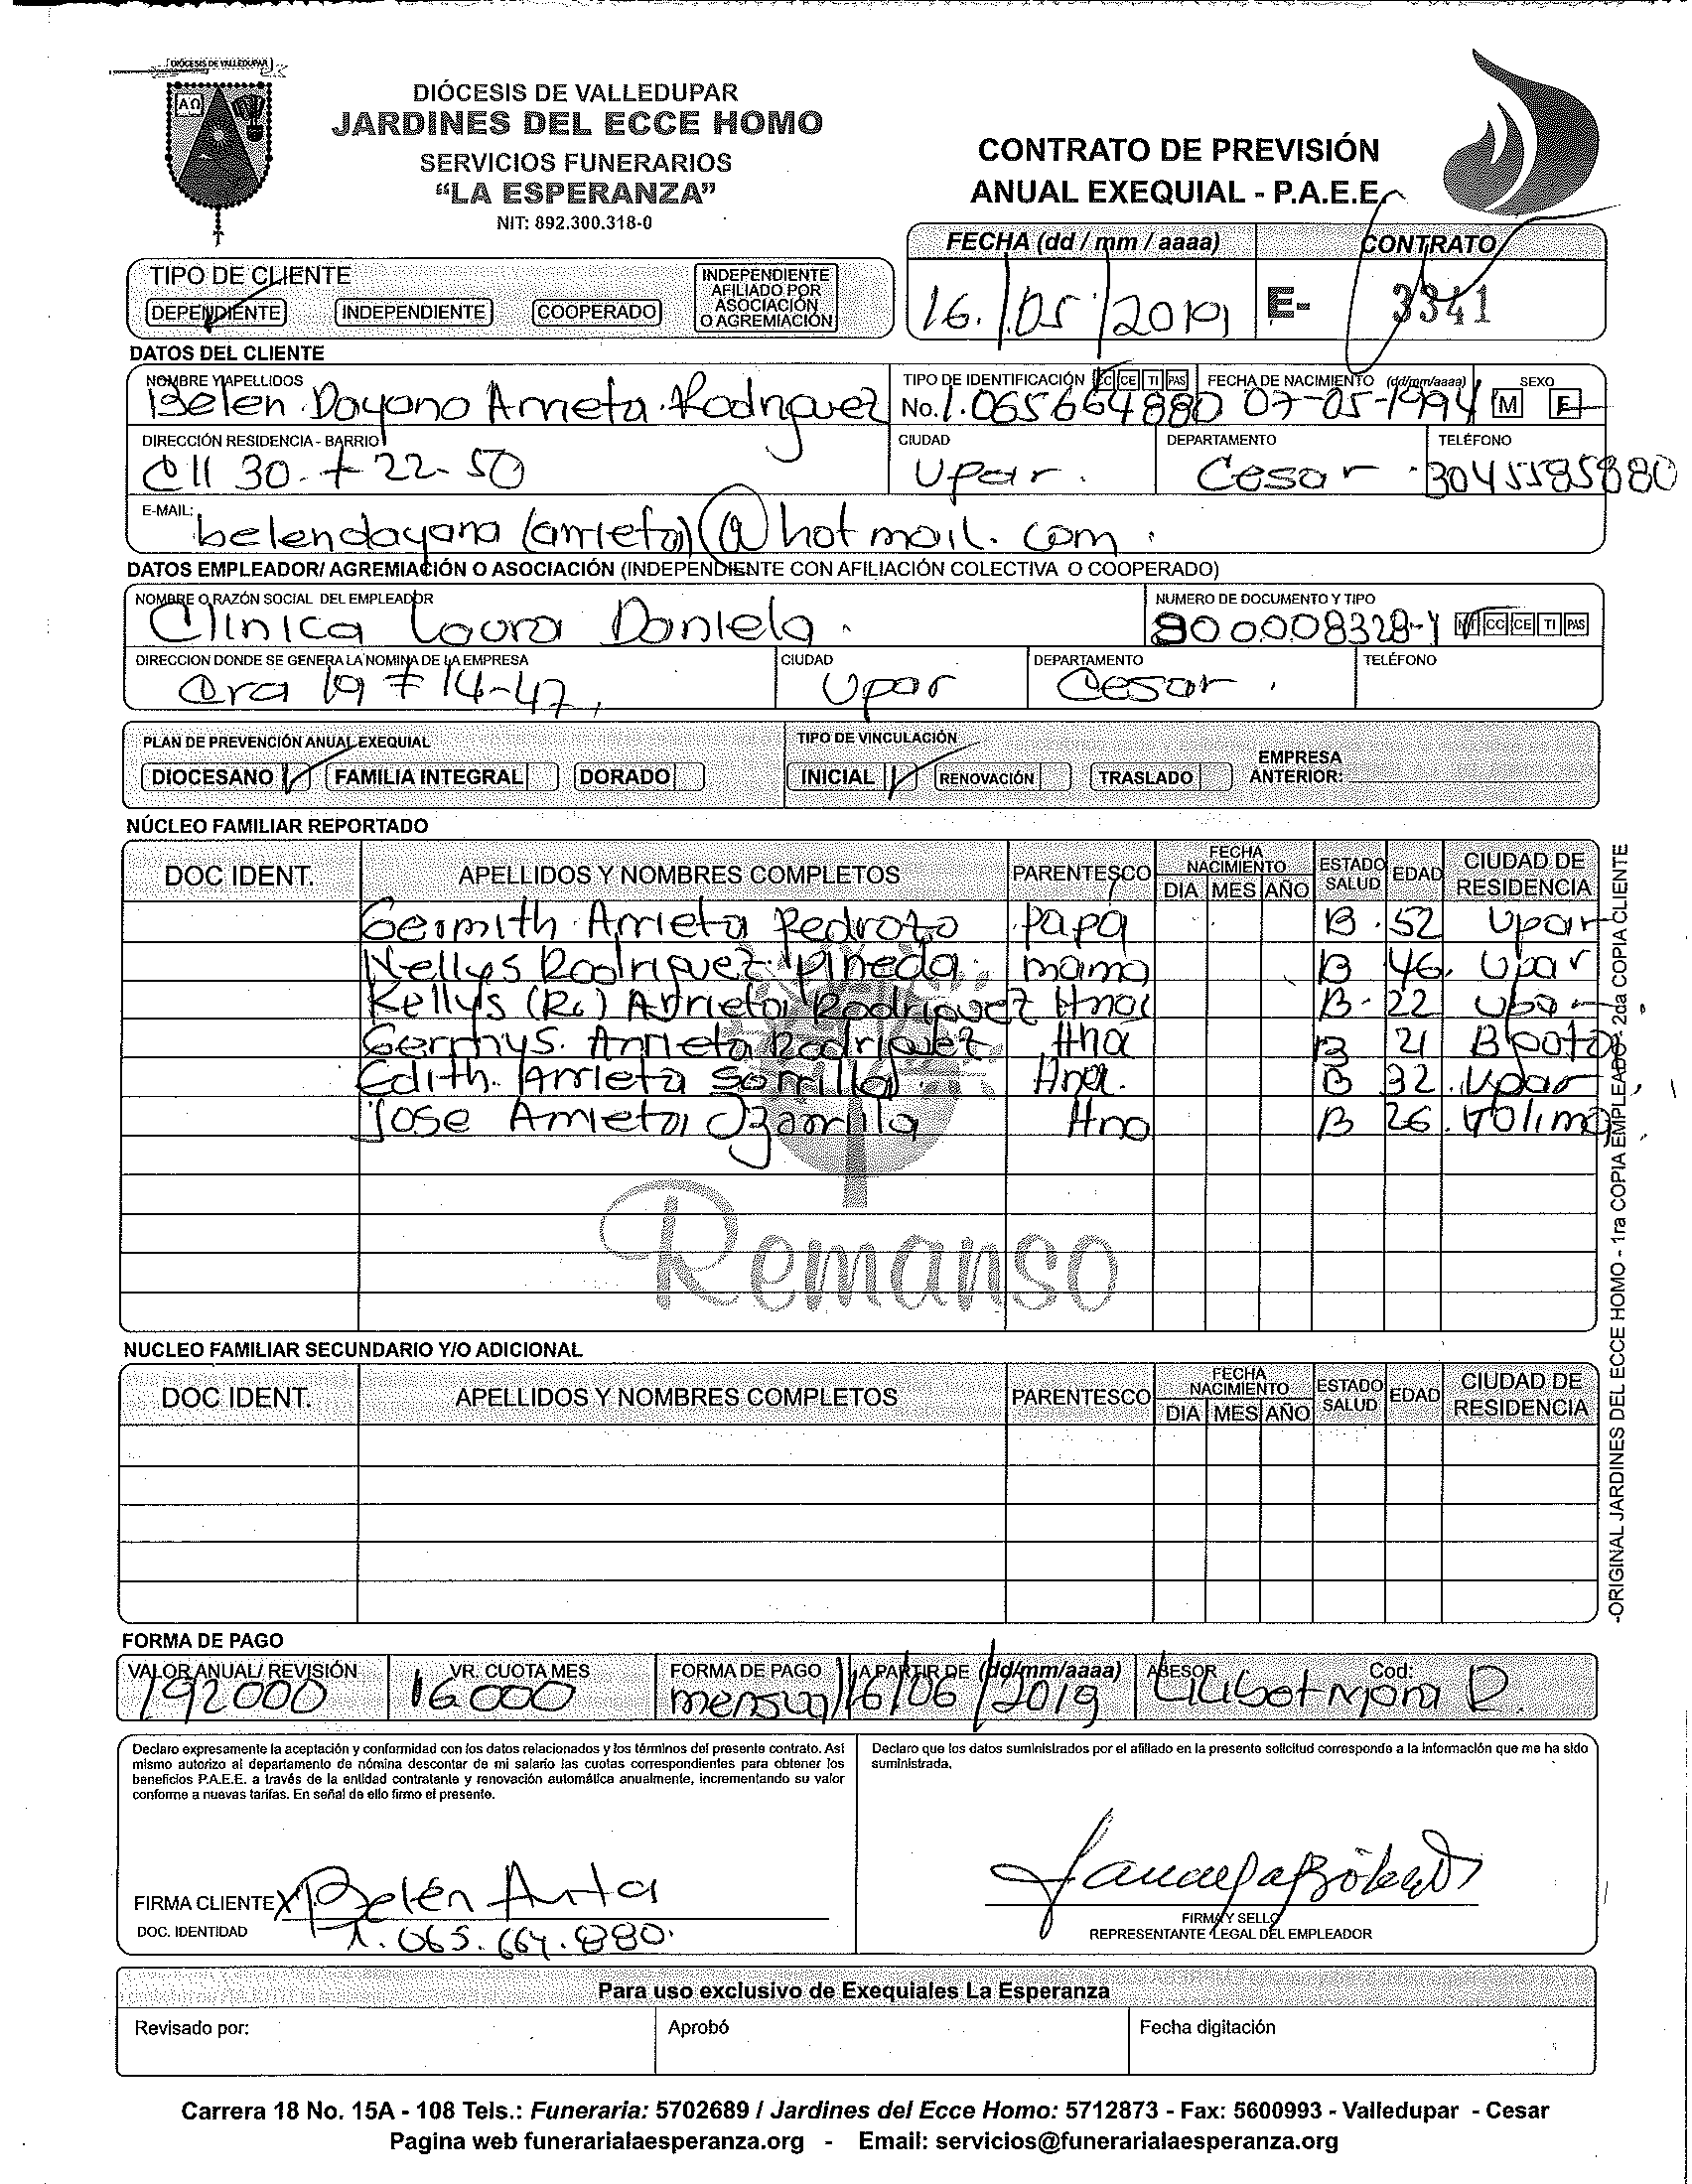 DIÓCESIS DE VALLEDUPAR
ΑΩ
DIÓCESIS DE VALLEDUPAR
JARDINES DEL ECCE HOMO
SERVICIOS FUNERARIOS
“LA ESPERANZA”
NIT: 892.300.318-0
CONTRATO DE PREVISIÓN
ANUAL EXEQUIAL - P.A.E.E.
FECHA (dd / mm / aaaa) CONTRATO
16/05/2019 E- 3341
TIPO DE CLIENTE
DEPENDIENTE INDEPENDIENTE COOPERADO INDEPENDIENTE AFILIADO POR ASOCIACIÓN O AGREMIACIÓN
DATOS DEL CLIENTE
NOMBRE Y APELLIDOS TIPO DE IDENTIFICACIÓN CC CE TI PAS FECHA DE NACIMIENTO (dd/mm/aaaa) SEXO
Belen Dayana Arrieta Rodriguez No. 1.065664880 07-05-1994 M F
DIRECCIÓN RESIDENCIA - BARRIO CIUDAD DEPARTAMENTO TELÉFONO
Cll 30 # 22-50 Upar. Cesar 3045585880
E-MAIL: belendayana (arrieta) @hotmail.com.
DATOS EMPLEADOR/ AGREMIACIÓN O ASOCIACIÓN (INDEPENDIENTE CON AFILIACIÓN COLECTIVA O COOPERADO)
NOMBRE O RAZÓN SOCIAL DEL EMPLEADOR NUMERO DE DOCUMENTO Y TIPO
Clinica Laura Daniela. 900008328-1 NIT CC CE TI PAS
DIRECCION DONDE SE GENERA LA NOMINA DE LA EMPRESA CIUDAD DEPARTAMENTO TELÉFONO
Cra 19 # 14-47, Upar Cesar.
PLAN DE PREVENCIÓN ANUAL EXEQUIAL TIPO DE VINCULACIÓN
DIOCESANO FAMILIA INTEGRAL DORADO INICIAL RENOVACIÓN TRASLADO EMPRESA ANTERIOR:
NÚCLEO FAMILIAR REPORTADO
DOC IDENT. APELLIDOS Y NOMBRES COMPLETOS PARENTESCO FECHA NACIMIENTO DIA MES AÑO ESTADO SALUD EDAD CIUDAD DE RESIDENCIA
Geimith Arrieta Pedrozo papa B. 52 Upar
Nellys Rodriguez Pineda. mama B 46. Upar
Kellys (R.) Arrieta Rodriguez Hna B- 22 Upar
Arrieta Rodriguez Hna B 21 Bgota
Edith. Arrieta Hna. B 32. Upar
Jose Arrieta Hno B 26. Tolima
Remanso
NUCLEO FAMILIAR SECUNDARIO Y/O ADICIONAL
DOC IDENT. APELLIDOS Y NOMBRES COMPLETOS PARENTESCO FECHA NACIMIENTO DIA MES AÑO ESTADO SALUD EDAD CIUDAD DE RESIDENCIA
-ORIGINAL JARDINES DEL ECCE HOMO - 1ra COPIA EMPLEADO 2da COPIA CLIENTE
FORMA DE PAGO
VALOR ANUAL/ REVISIÓN VR. CUOTA MES FORMA DE PAGO A PARTIR DE (dd/mm/aaaa) ASESOR Cod:
192000 16000 mensual 16/06/2019 Lilibet Mora R.
Declaro expresamente la aceptación y conformidad con los datos relacionados y los términos del presente contrato. Así
mismo autorizo al departamento de nómina descontar de mi salario las cuotas correspondientes para obtener los
beneficios P.A.E.E. a través de la entidad contratante y renovación automática anualmente, incrementando su valor
conforme a nuevas tarifas. En señal de ello firmo el presente.
Declaro que los datos suministrados por el afiliado en la presente solicitud corresponde a la información que me ha sido
suministrada.
FIRMA CLIENTE X Belén Arrta
DOC. IDENTIDAD 1.065.664.880.
FIRMA Y SELLO
REPRESENTANTE LEGAL DEL EMPLEADOR
Para uso exclusivo de Exequiales La Esperanza
Revisado por: Aprobó Fecha digitación
Carrera 18 No. 15A - 108 Tels.: Funeraria: 5702689 / Jardines del Ecce Homo: 5712873 - Fax: 5600993 - Valledupar - Cesar
Pagina web funerarialaesperanza.org - Email: servicios@funerarialaesperanza.org